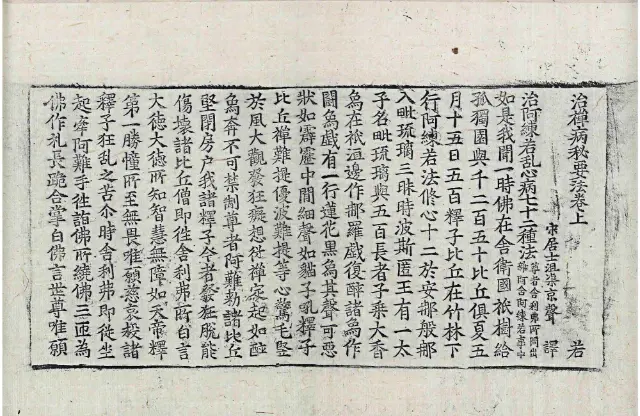 治禪病秘要法卷上
宋居士沮渠京聲 譯 若
治阿練若乱心病七十二種法 尊者舍利弗所問出
雜阿含阿練若事中
如是我聞一時佛在舍衛國祇樹給
孤獨園與千二百五十比丘俱夏五
月十五日五百釋子比丘在竹林下
行阿練若法修心十二於安那般那
入毗琉璃三昧時波斯匿王有一太
子名毗琉璃與五百長者子乘大香
象在祇洹邊作那羅戲復醉諸象作
鬪象戲有一行蓮花黑象其聲可惡
狀如霹靂中間細聲如猫子吼釋子
比丘禪難提優波難提等心驚毛竪
於風大觀發狂癡想從禪定起如醉
象奔不可禁制尊者阿難勑諸比丘
堅閉房戶我諸釋子今者發狂脫能
傷壞諸比丘僧即往舍利弗所白言
大德大德所知智慧無障如天帝釋
第一勝幢所至無畏唯願慈哀救諸
釋子狂乱之苦尒時舍利弗即從坐
起牽阿難手往詣佛所繞佛三匝為
佛作礼長跪合掌白佛言世尊唯願